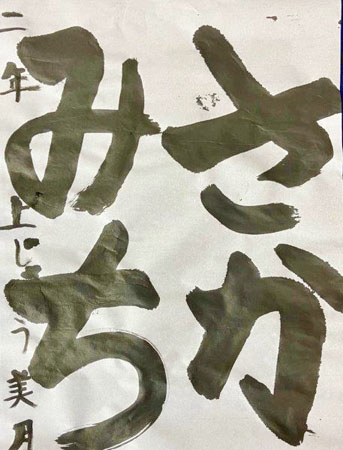 さか
みち
二年 上じょう美月